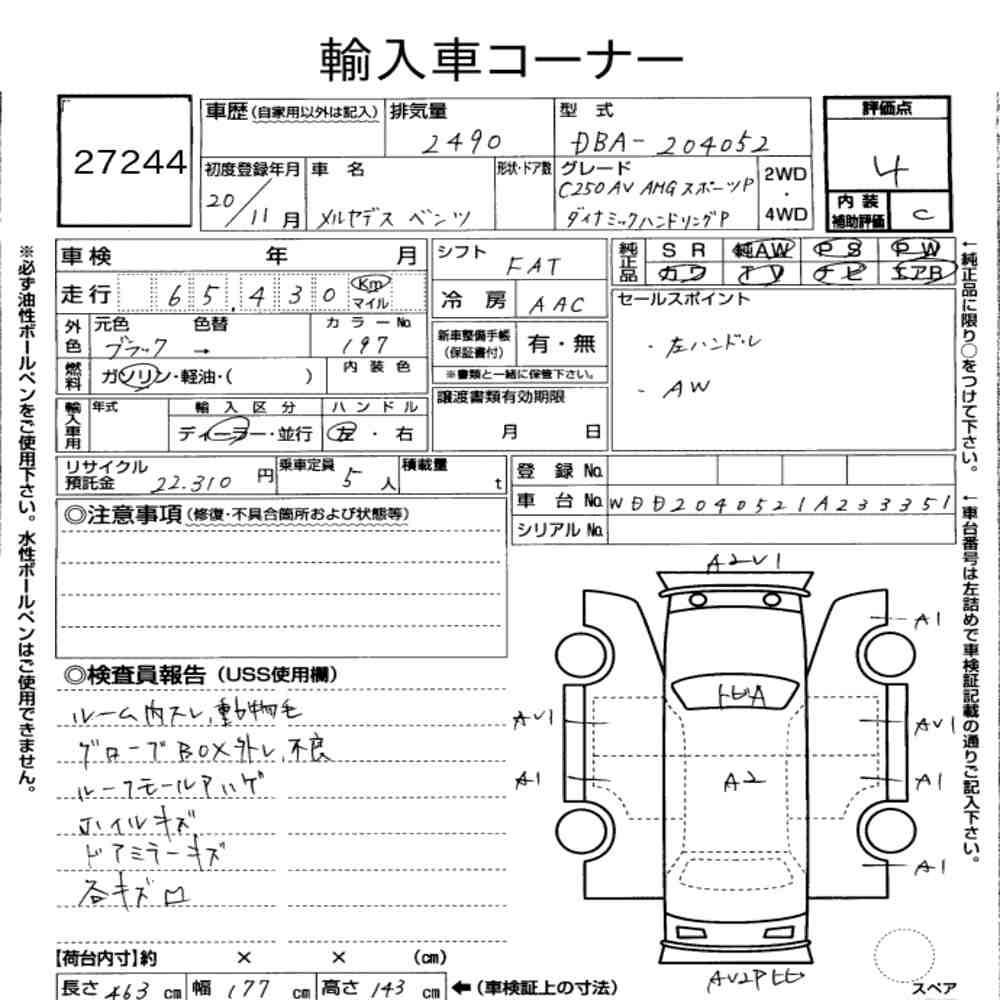 輸入車コーナー
27244
車歴(自家用以外は記入) 排気量 2490
型式 DBA-204052
評価点 4
内装補助評価 C
初度登録年月 20/11月
車名 メルセデス ベンツ
形状・ドア数
グレード C250 AV AMGスポーツP
ダイナミックハンドリングP
2WD・4WD
車検 年 月
走行 65,430 Km マイル
シフト FAT
冷房 AAC
純正品 SR 純AW PS PW
カワ TV ナビ エアB
セールスポイント
・左ハンドル
・AW
外色 元色 ブラック → 色替
カラーNo. 197
燃料 ガソリン・軽油・( )
内装色
新車整備手帳(保証書付) 有・無
※書類と一緒に保管下さい。
輸入車用 年式
輸入区分 ディーラー・並行
ハンドル 左・右
譲渡書類有効期限
月 日
リサイクル預託金 22.310円
乗車定員 5人
積載量 t
登録No.
車台No. WDD2040521A233351
シリアルNo.
◎注意事項(修復・不具合箇所および状態等)
◎検査員報告(USS使用欄)
ルーム内スレ,動物毛
グローブBOX外レ,不良
ルーフモールアハゲ
ホイルキズ
ドアミラーキズ
各キズ
A2V1
A1
トビA
AV1
AV1
A1
A2
A1
A1
スペア
【荷台内寸】約 × × (cm)
長さ 463 cm 幅 177 cm 高さ 143 cm ←(車検証上の寸法)
※必ず油性ボールペンをご使用下さい。水性ボールペンはご使用できません。
←純正品に限り○をつけて下さい。
←車台番号は左詰めで車検証記載の通りご記入下さい。